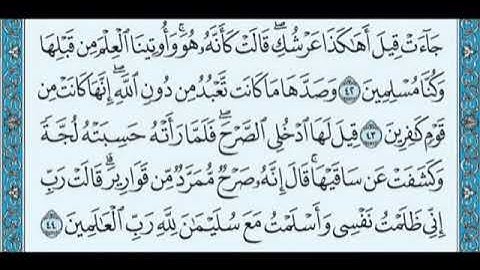 جَآءَتۡ قِيلَ أَهَٰكَذَا عَرۡشُكِۖ قَالَتۡ كَأَنَّهُۥ هُوَۚ وَأُوتِينَا ٱلۡعِلۡمَ مِن قَبۡلِهَا
وَكُنَّا مُسۡلِمِينَ ٤٢ وَصَدَّهَا مَا كَانَت تَّعۡبُدُ مِن دُونِ ٱللَّهِۖ إِنَّهَا كَانَتۡ مِن
قَوۡمٖ كَٰفِرِينَ ٤٣ قِيلَ لَهَا ٱدۡخُلِي ٱلصَّرۡحَۖ فَلَمَّا رَأَتۡهُ حَسِبَتۡهُ لُجَّةٗ
وَكَشَفَتۡ عَن سَاقَيۡهَاۚ قَالَ إِنَّهُۥ صَرۡحٞ مُّمَرَّدٞ مِّن قَوَارِيرَۗ قَالَتۡ رَبِّ
إِنِّي ظَلَمۡتُ نَفۡسِي وَأَسۡلَمۡتُ مَعَ سُلَيۡمَٰنَ لِلَّهِ رَبِّ ٱلۡعَٰلَمِينَ ٤٤